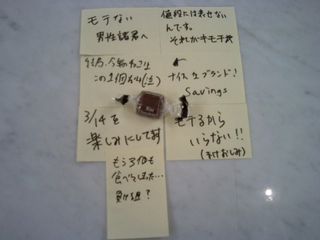 モテない
男性諸君へ
値段には表せない
んです。
それがキモチ
結局、今年もコレ
この1個だけ(泣)
ナイスなブランド!
Savings
3/14を
楽しみにしてます
モテるから
いらない!!
(まけおしみ)
もう3個も
食べてしまった…
負け組?